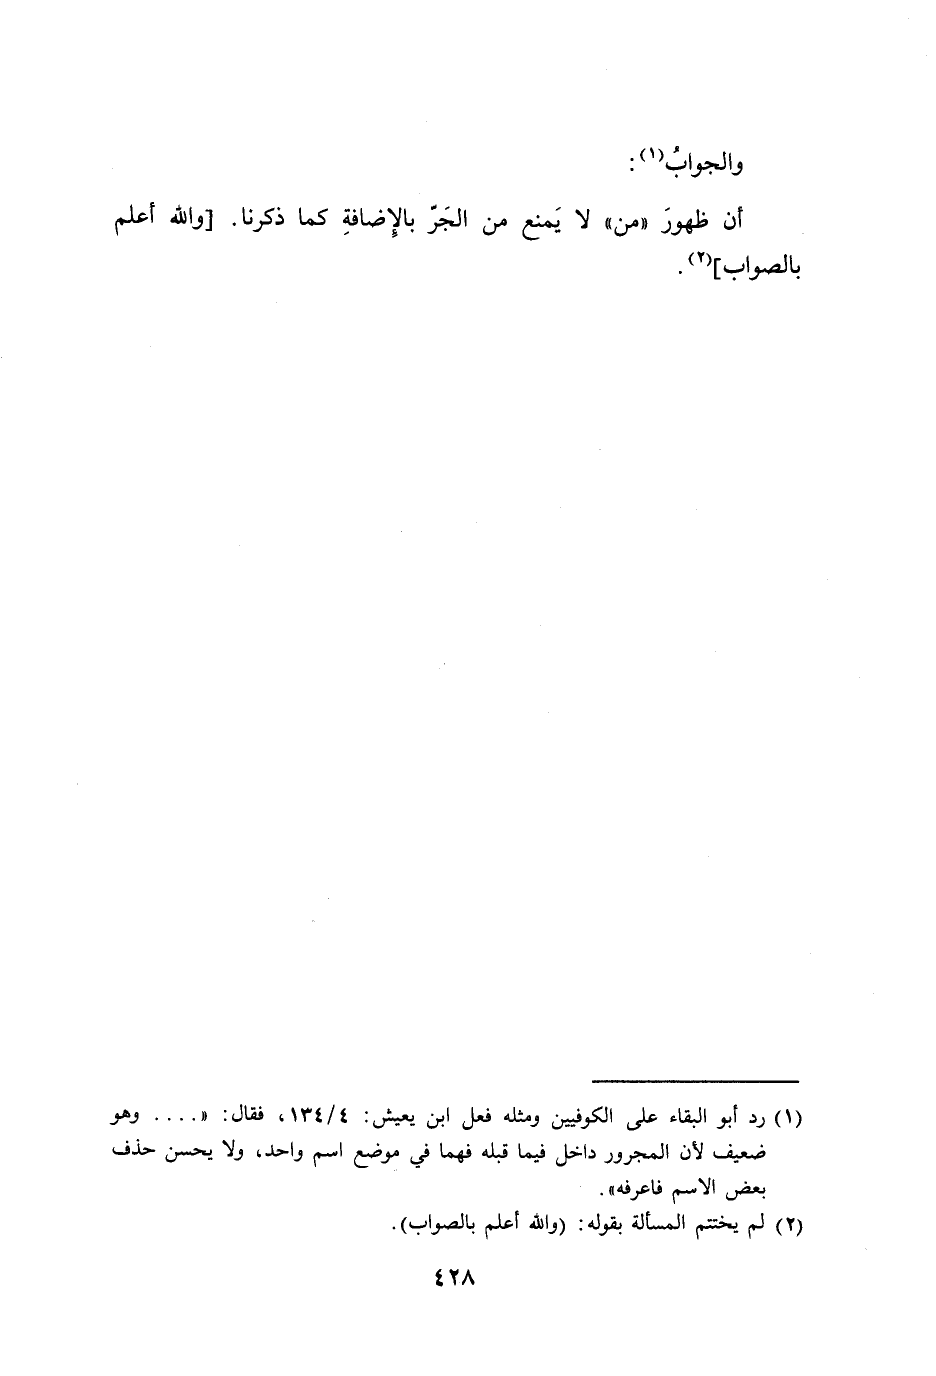 والجوابُ(١):
أن ظهورَ «من» لا يَمنع من الجَرّ بالإِضافةِ كما ذكرنا. [والله أعلم
بالصواب](٢).
(١) رد أبو البقاء على الكوفيين ومثله فعل ابن يعيش: ٤/ ١٣٤، فقال: «.... وهو
ضعيف لأن المجرور داخل فيما قبله فهما في موضع اسم واحد، ولا يحسن حذف
بعض الاسم فاعرفه».
(٢) لم يختتم المسألة بقوله: (والله أعلم بالصواب).
٤٢٨